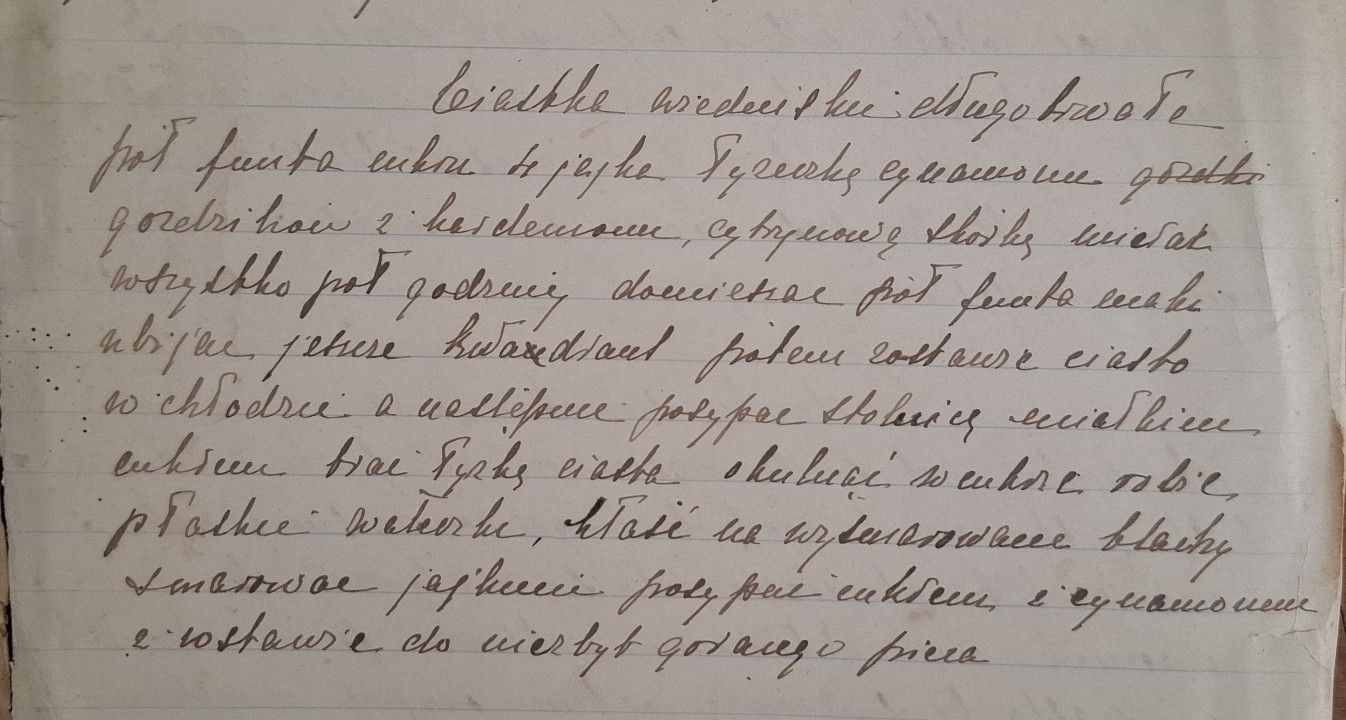 Ciastka wiedeński długotrwałe
pół funta cukru 4 jajka łyżeczkę cynamonu gozdki
gozdzikow i kardemonu, cytrynową skórkę miećak
wszystko poł godziny domieszac pół funta maki
ubijac jeszcze kwandrant potem zostawic ciasto
w chłodzie a następnie posypac stolnicę miałkiem
cukrem brać łyżkę ciasta okulnać w cukrze robic
płaskie wałeczki, kłaść na wysmarowane blachy
smarowac jajkiem posypac cukrem i cynamonem
i wstawic do niezbyt gorącego pieca